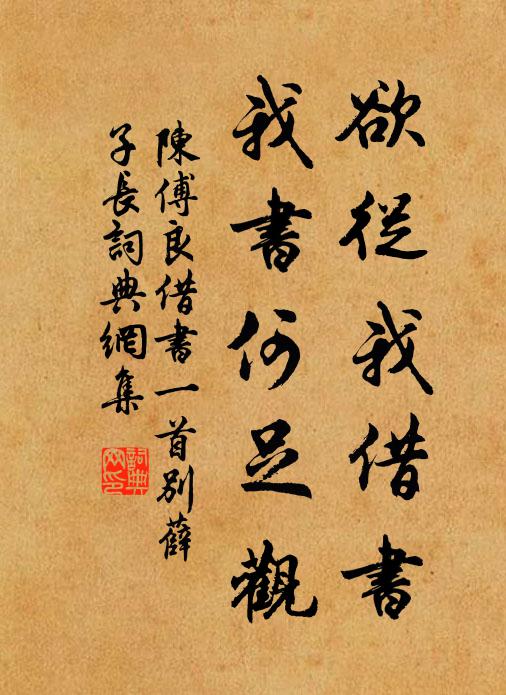 欲從我借書
我書何足觀
陳傅良借書一首別薛
子長詞典網集
詞典網印